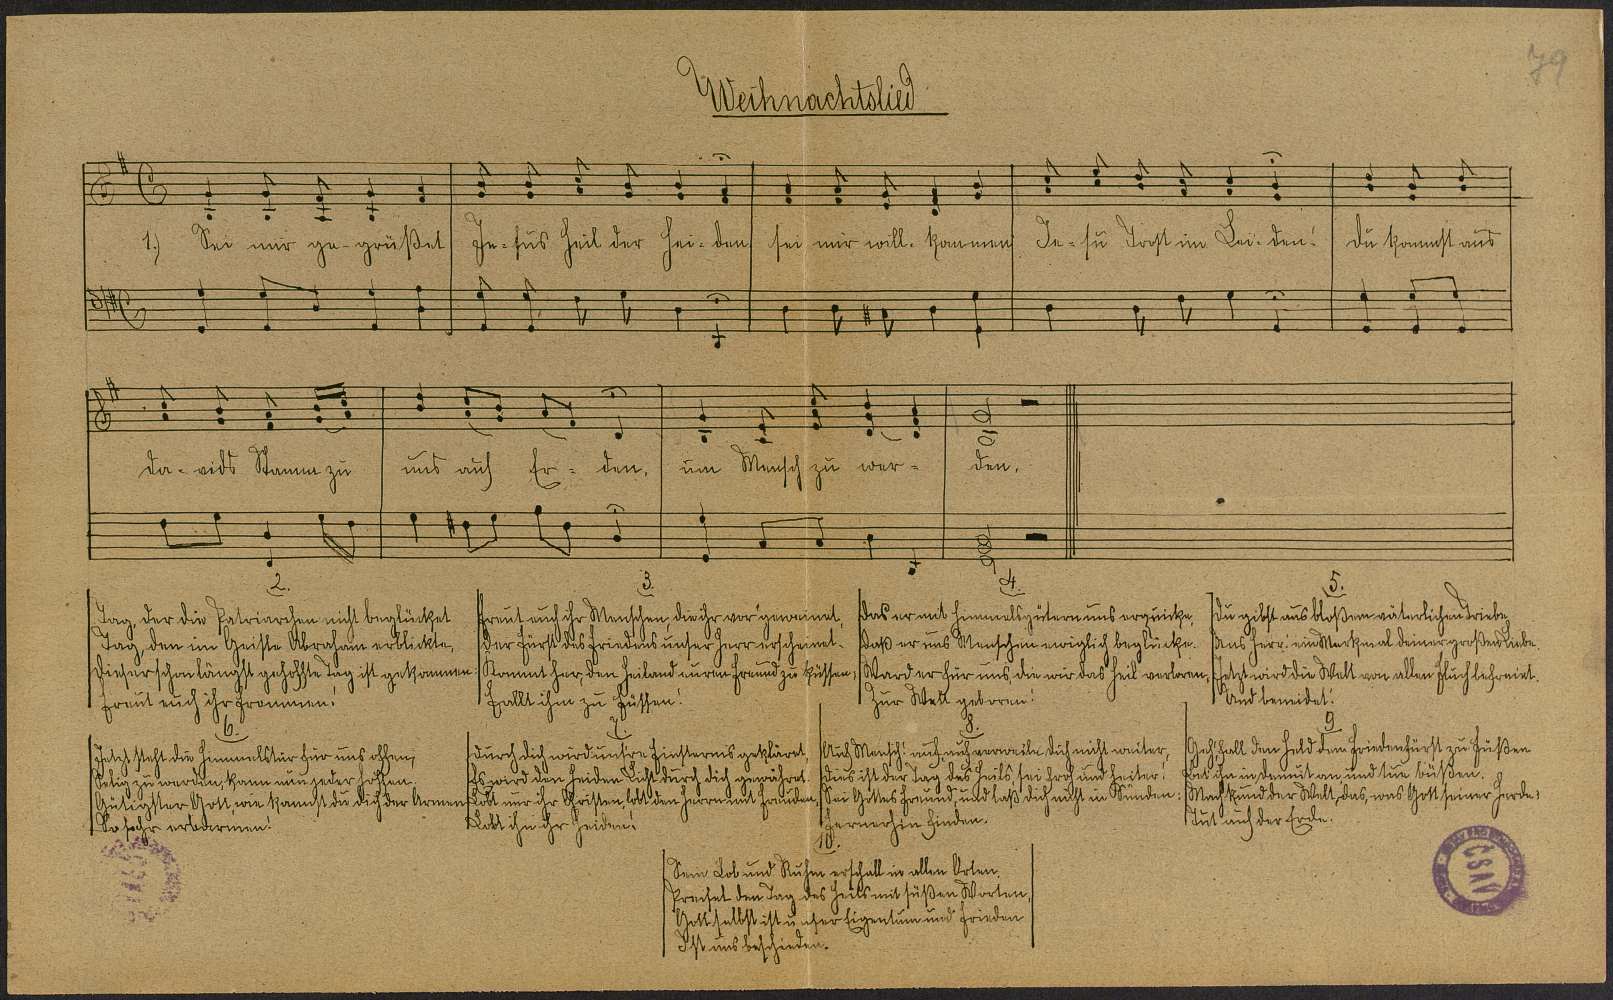 79
Weihnachtslied
1.) Sei mir ge-grüßet Je-sus Heil der Hei-den sei mir will-kommen Je-su Trost im Lei-den! Du kommst aus
Da-vids Stamm zu uns auf Er-den, um Mensch zu wer-den.
2.
Tag, der die Patriarchen nicht beglücket
Tag, den im Geiste Abraham erblickte,
Dieser schon längst gehoffte Tag ist gekommen.
Freut euch ihr Frommen!
3.
Freut euch ihr Menschen, die ihr vor geweinet,
Der Fürst des Friedens unser Herr erscheinet.
Kommt her, den Heiland euren Freund zu küssen;
Fallt ihm zu Füssen!
4.
Das er mit Himmelsgütern uns erquicke,
Daß er uns Menschen ewiglich beglücke.
Ward er für uns, die wir das Heil verloren,
Zur Welt geboren!
5.
Du gibst aus bloßem väterlichen Triebe
Uns Herr! ein Merkmal deiner großen Liebe.
Jetzt wird die Welt von allen Fluch befreiet.
Und beneidet!
6.
Jetzt steht die Himmelstür für uns offen,
Selig zu werden, kann nun jeder hoffen.
Gütigster Gott, wie kannst du dich der Armen
So sehr erbarmen!
7.
Durch dich wird unsre Finsternis gekläret,
Es wird den Heiden Licht durch dich gewähret.
Lobt nur ihr Christen, lobt den Herrn mit Freuden,
Lobt ihn ihr Heiden!
8.
Auf Mensch! auf, auf verweile dich nicht weiter,
Dies ist der Tag des Heils, sei froh und heiter!
Sei Gottes Freund, und laß dich nicht in Sünden
Fernerhin finden.
9
Geh! fall dem Held dem Friedenfürst zu Füßen
Bet ihn in Demut an, und tue büßen.
Mach kund der Welt, das, was Gott seiner Herde
Tut auf der Erde.
10.
Sein Lob und Ruhm erschall in allen Orten.
Preiset den Tag des Heils mit süßen Worten,
Gott selbst ist unser Eigentum und Frieden
Ist uns beschieden.
ČSAV